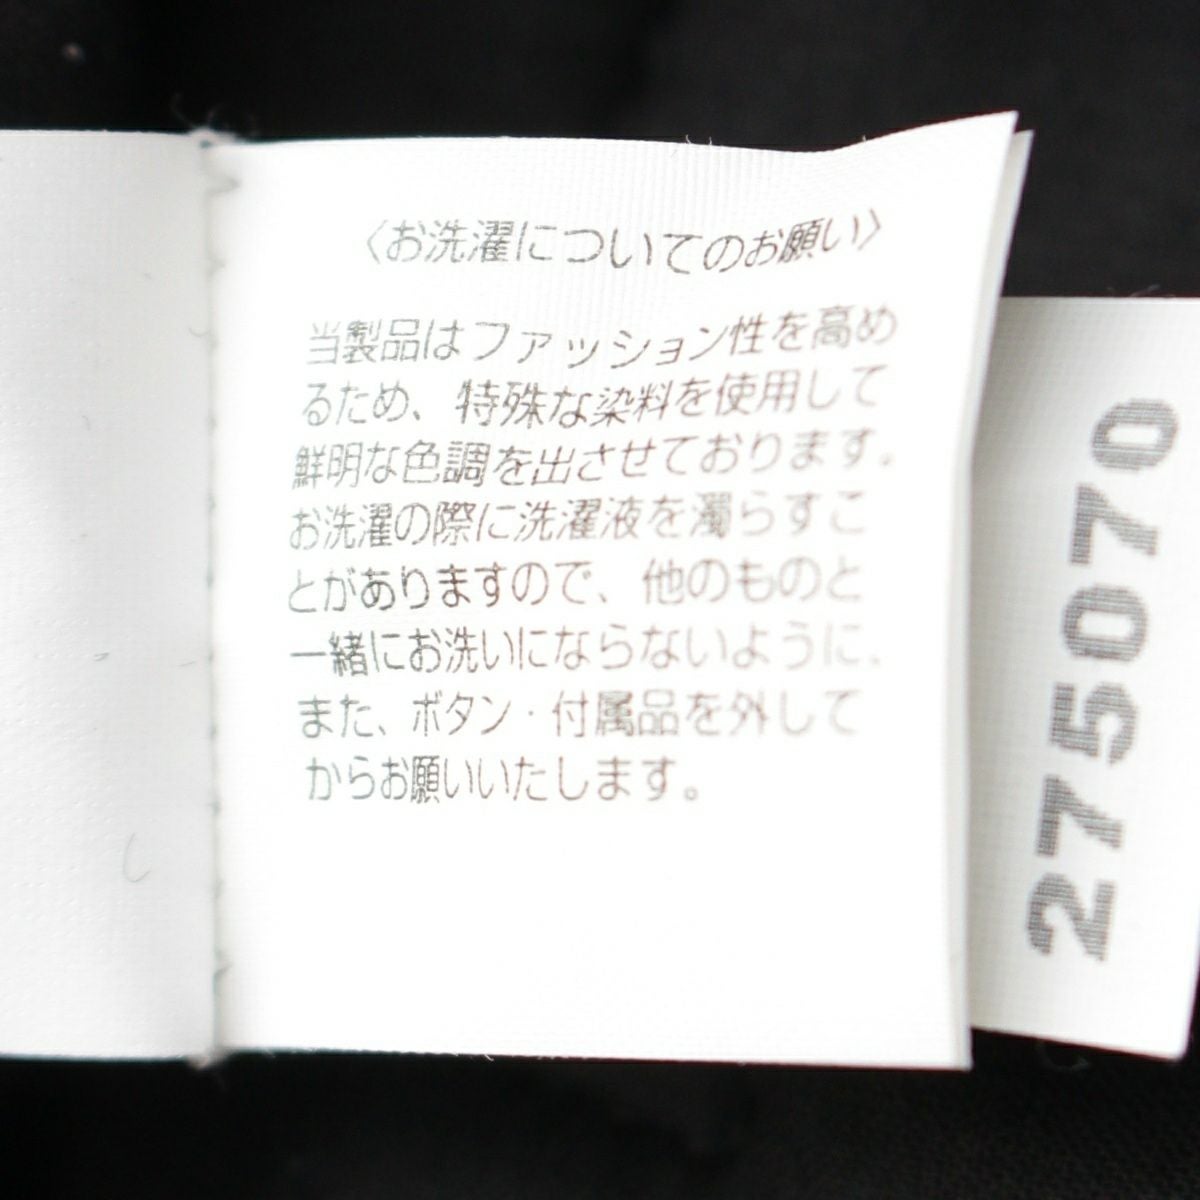 〈お洗濯についてのお願い〉
当製品はファッション性を高め
るため、特殊な染料を使用して
鮮明な色調を出させております。
お洗濯の際に洗濯液を濁らすこ
とがありますので、他のものと
一緒にお洗いにならないように、
また、ボタン・付属品を外して
からお願いいたします。
275070